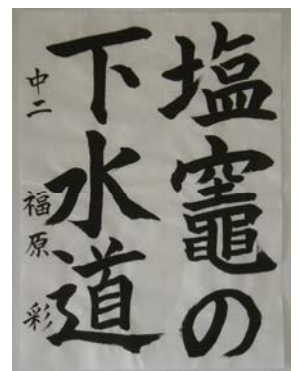 塩竈の
下水道
中二 福原 彩